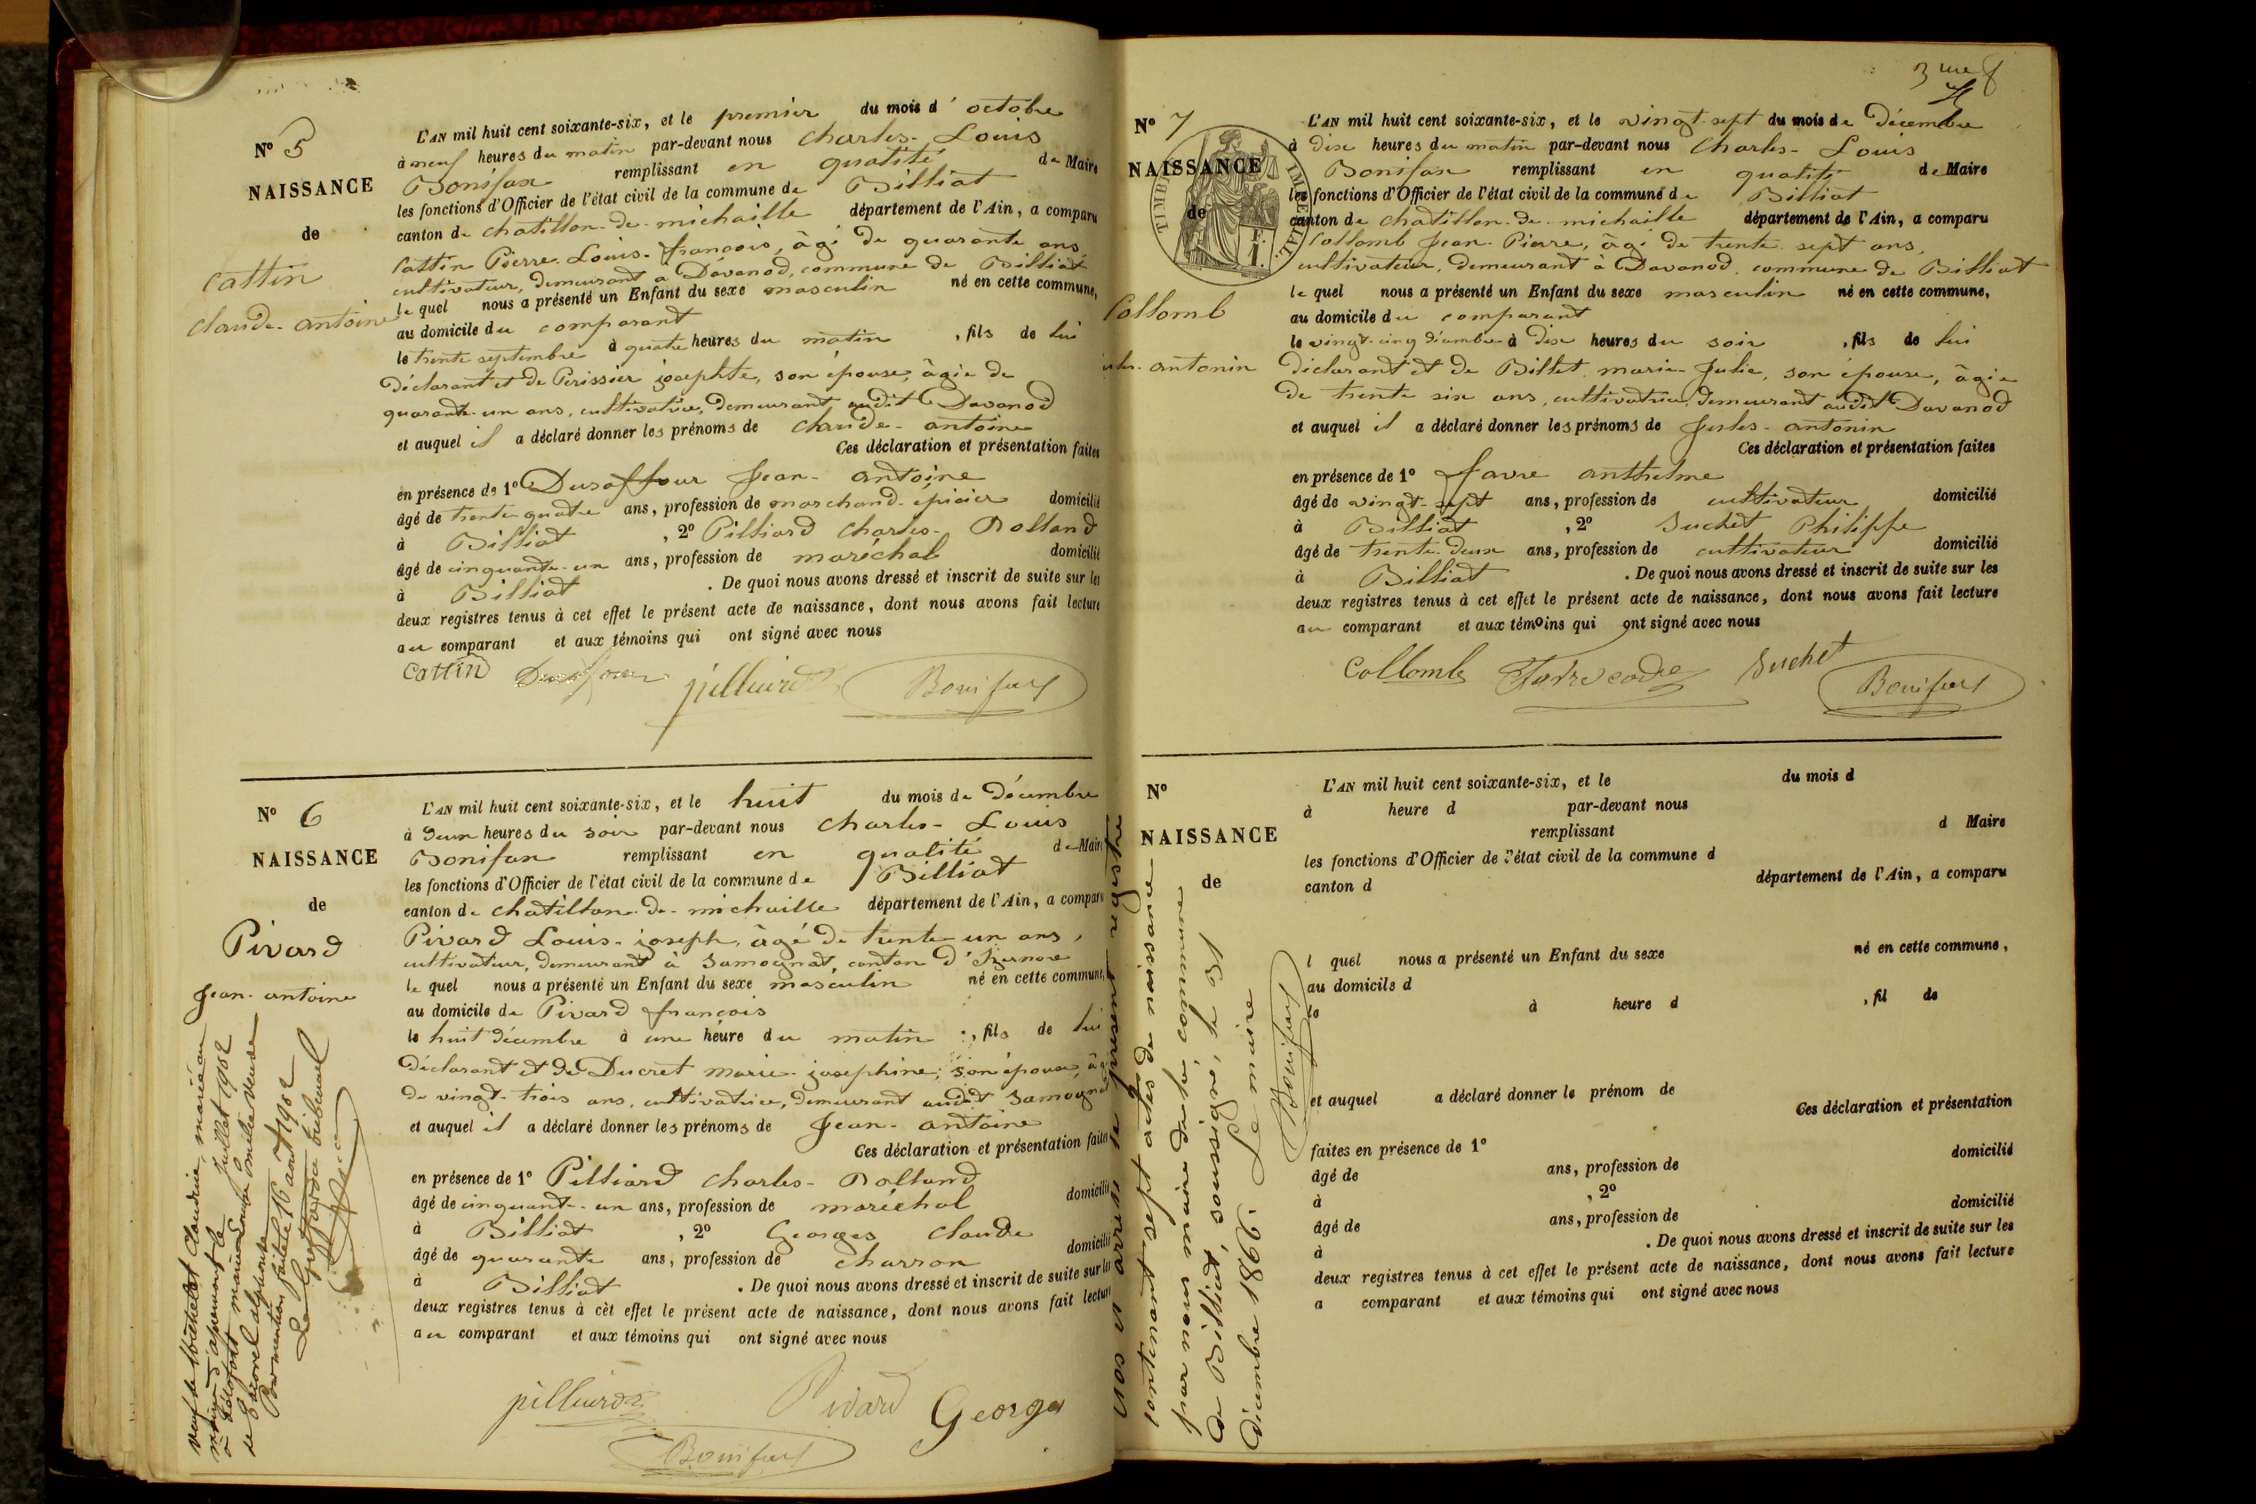 N° 5
NAISSANCE
de
Cattin
Claude-antoine
L'AN mil huit cent soixante-six, et le premier du mois d'octobre
à neuf heures du matin par-devant nous Charles-Louis
Bonifax remplissant en qualité de Maire
les fonctions d'Officier de l'état civil de la commune de Billiat
canton de chatillon-de-michaille département de l'Ain, a comparu
Cattin Pierre-Louis-françois, âgé de quarante ans
cultivateur, demeurant à Davanod, commune de Billiat
lequel nous a présenté un Enfant du sexe masculin né en cette commune,
au domicile du comparant
le trente septembre à quatre heures du matin , fils de lui
Déclarant et de Perissier josephte, son épouse, âgée de
quarante-un ans, cultivatrice, demeurant audit Davanod
et auquel il a déclaré donner les prénoms de Claude-antoine
Ces déclaration et présentation faites
en présence de 1° Dusaffour Jean-antoine
âgé de trente-quatre ans, profession de marchand-épicier domicilié
à Billiat , 2° Pilliard Charles-Rolland
âgé de cinquante-un ans, profession de maréchal domicilié
à Billiat . De quoi nous avons dressé et inscrit de suite sur les
deux registres tenus à cet effet le présent acte de naissance, dont nous avons fait lecture
au comparant et aux témoins qui ont signé avec nous
Cattin Dusaffour pilliard Bonifax
N° 6
NAISSANCE
de
Pivard
Jean-antoine
L'AN mil huit cent soixante-six, et le huit du mois de Décembre
à deux heures du soir par-devant nous Charles-Louis
Bonifax remplissant en qualité de Maire
les fonctions d'Officier de l'état civil de la commune de Billiat
canton de chatillon-de-michaille département de l'Ain, a comparu
Pivard Louis-joseph, âgé de trente-un ans,
cultivateur, demeurant à Samognat, canton d'Izernore
lequel nous a présenté un Enfant du sexe masculin né en cette commune,
au domicile de Pivard françois
le huit décembre à une heure du matin , fils de lui
Déclarant et de Ducret marie-josephine, son épouse, âgée
de vingt-trois ans, cultivatrice, demeurant audit Samognat
et auquel il a déclaré donner les prénoms de Jean-antoine
Ces déclaration et présentation faites
en présence de 1° Pilliard Charles-Rolland
âgé de cinquante-un ans, profession de maréchal domicilié
à Billiat , 2° Georges Claude
âgé de quarante ans, profession de charron domicilié
à Billiat . De quoi nous avons dressé et inscrit de suite sur les
deux registres tenus à cet effet le présent acte de naissance, dont nous avons fait lecture
au comparant et aux témoins qui ont signé avec nous
pilliard Pivard Georges
Bonifax
Claudine, mariée au
Juillet 1902
à Bellefort
Par mention faite le 16 août 1902
Le Greffier du tribunal
3me f
N° 7
NAISSANCE
de
TIMBRE IMPÉRIAL
Collomb
Jules-antonin
L'AN mil huit cent soixante-six, et le vingt-sept du mois de Décembre
à dix heures du matin par-devant nous Charles-Louis
Bonifax remplissant en qualité de Maire
les fonctions d'Officier de l'état civil de la commune de Billiat
canton de chatillon-de-michaille département de l'Ain, a comparu
Collomb Jean-Pierre, âgé de trente-sept ans,
cultivateur, demeurant à Davanod, commune de Billiat
lequel nous a présenté un Enfant du sexe masculin né en cette commune,
au domicile du comparant
le vingt-cinq décembre à dix heures du soir , fils de lui
Déclarant et de Billet marie-Julie, son épouse, âgée
de trente six ans, cultivatrice, demeurant audit Davanod
et auquel il a déclaré donner les prénoms de Jules-antonin
Ces déclaration et présentation faites
en présence de 1° favre anthelme
âgé de vingt-sept ans, profession de cultivateur domicilié
à Billiat , 2° Suchet Philippe
âgé de trente-deux ans, profession de cultivateur domicilié
à Billiat . De quoi nous avons dressé et inscrit de suite sur les
deux registres tenus à cet effet le présent acte de naissance, dont nous avons fait lecture
au comparant et aux témoins qui ont signé avec nous
Collomb Suchet Bonifax
N°
NAISSANCE
de
L'AN mil huit cent soixante-six, et le du mois d
à heure d par-devant nous
remplissant d Maire
les fonctions d'Officier de l'état civil de la commune d
canton d département de l'Ain, a comparu
l quel nous a présenté un Enfant du sexe né en cette commune,
au domicile d
le à heure d , fil de
et auquel a déclaré donner le prénom de
Ces déclaration et présentation
faites en présence de 1°
âgé de ans, profession de domicilié
à , 2°
âgé de ans, profession de domicilié
à . De quoi nous avons dressé et inscrit de suite sur les
deux registres tenus à cet effet le présent acte de naissance, dont nous avons fait lecture
a comparant et aux témoins qui ont signé avec nous
Clos et arrêté le présent registre
contenant sept actes de naissance
par nous maire de la commune
de Billiat, soussigné, le 31
Décembre 1866. Le maire
Bonifax